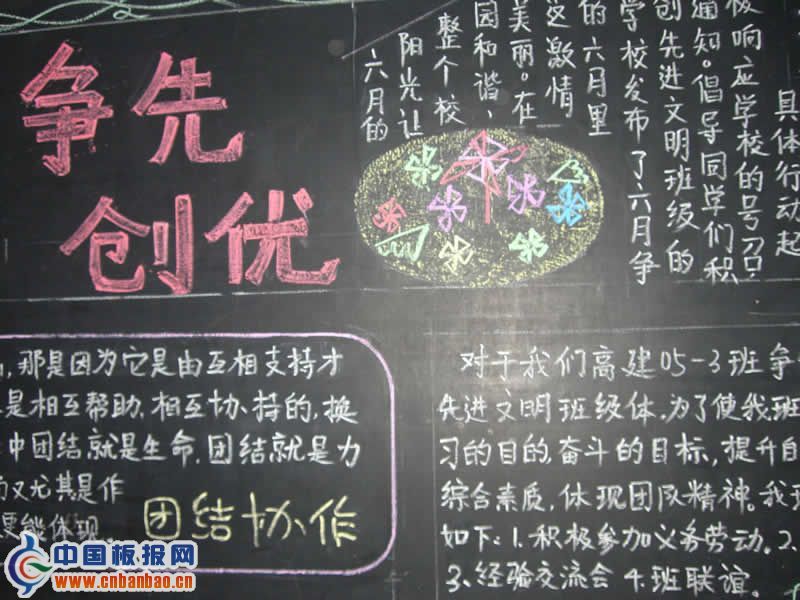 争先
创优
六月的
阳光让
整个校
园和谐、
美丽。在
这激情
的六月里
学校发布了六月争
创先进文明班级的
通知。倡导同学们积
极响应学校的号召!
具体行动起
,那是因为它是由互相支持才
是相互帮助,相互协持的,换
中团结就是生命,团结就是力
又尤其是作
更能体现
团结协作
对于我们高建05-3班争
先进文明班级体,为了使我班
习的目的,奋斗的目标,提升自
综合素质,体现团队精神。我班
如下:1.积极参加义务劳动。2.
3、经验交流会 4.班联谊。
中国板报网
www.cnbanbao.cn